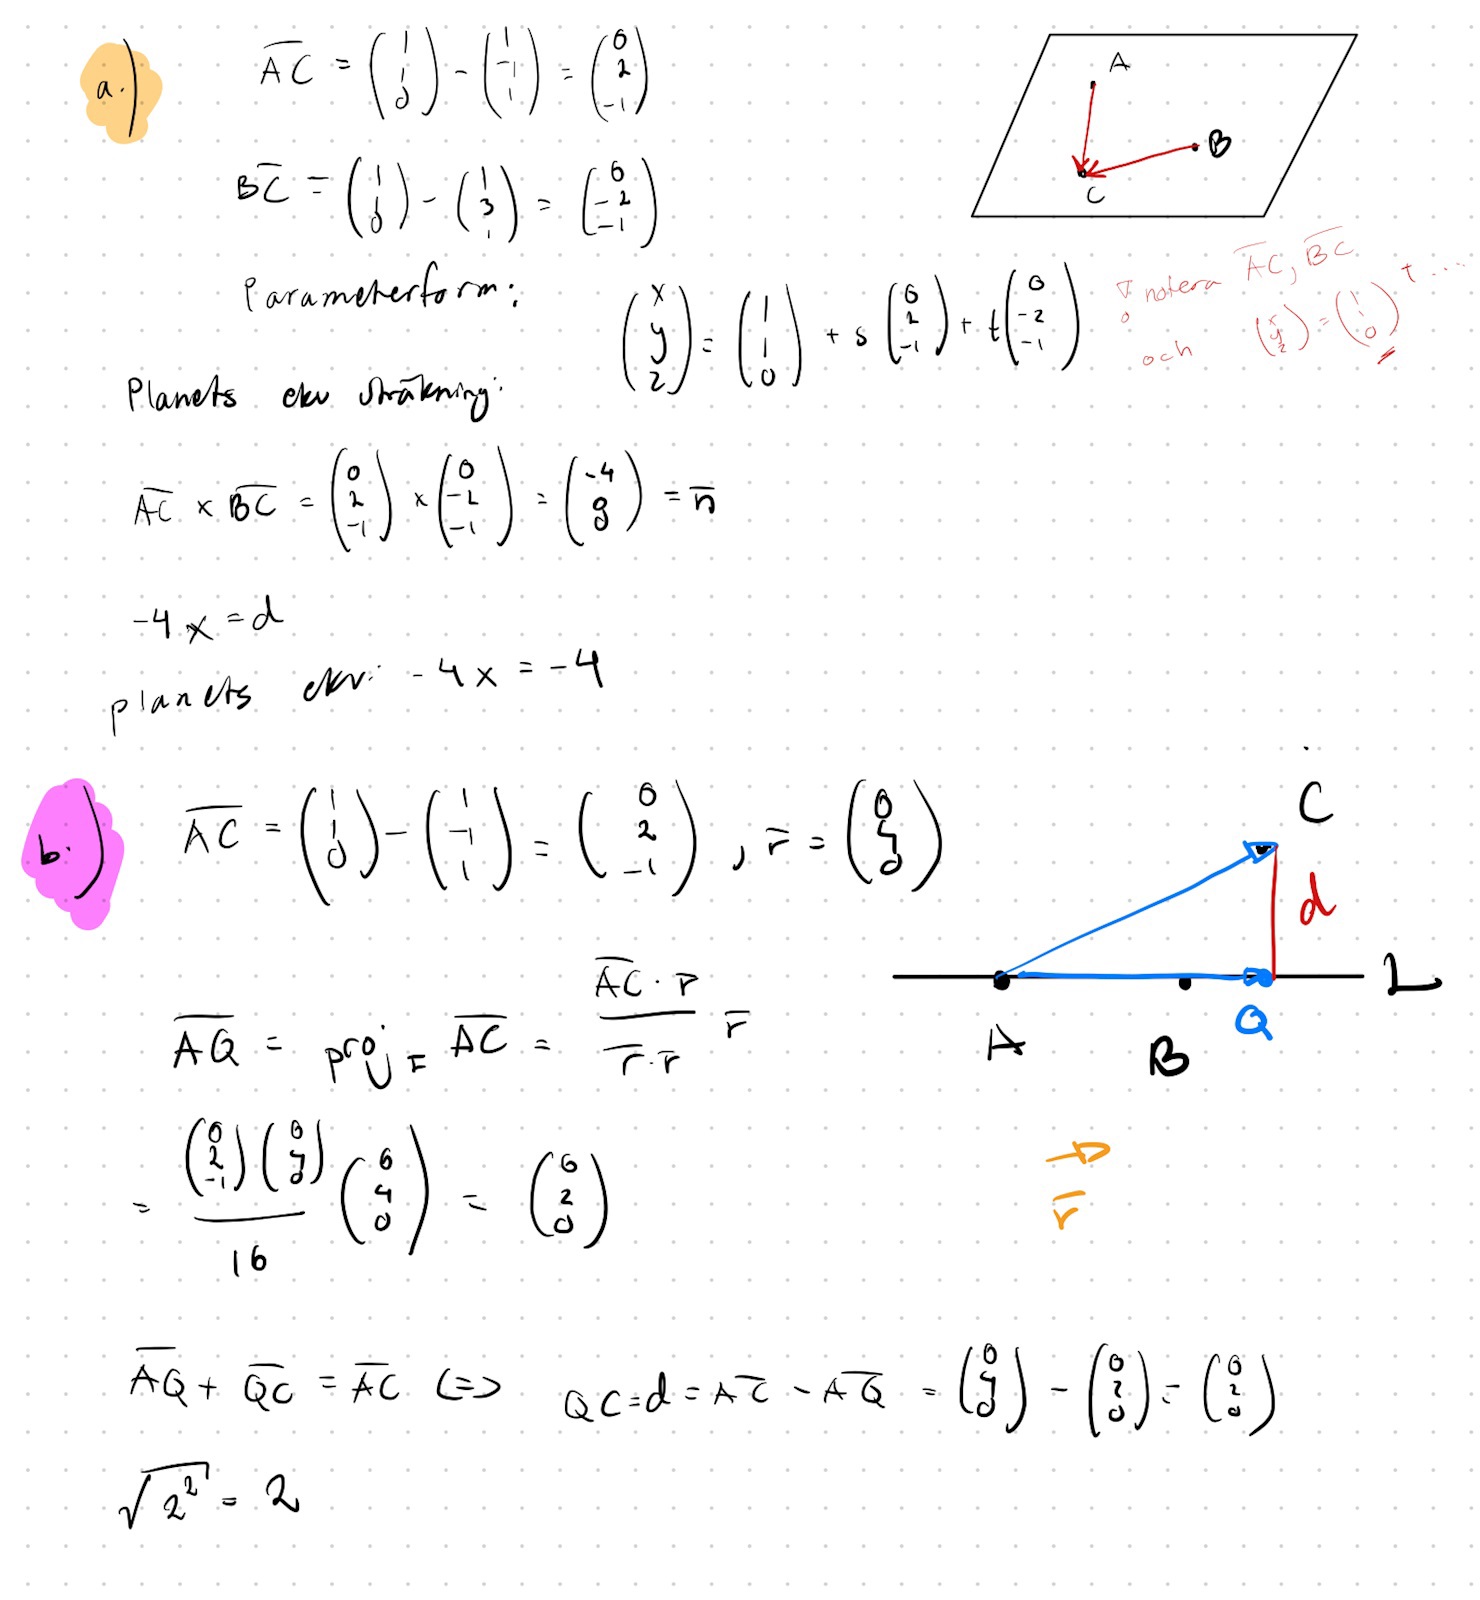 a.)
AC = (1 1 0) - (1 -1 1) = (0 2 -1)
A
B
C
BC = (1 1 0) - (1 3 1) = (0 -2 -1)
Parameterform:
(x y z) = (1 1 0) + s (0 2 -1) + t (0 -2 -1)
notera AC, BC
och (x y z) = (1 1 0) + ....
Planets ekv uträkning:
AC × BC = (0 2 -1) × (0 -2 -1) = (-4 0 0) = n
-4x = d
planets ekv: -4x = -4
b.)
AC = (1 1 0) - (1 -1 1) = (0 2 -1), r = (0 4 0)
C
d
L
A
B
Q
r
AQ = proj r AC = AC · r / r · r r
= (0 2 -1)(0 4 0) / 16 (0 4 0) = (0 2 0)
AQ + QC = AC <=> QC = d = AC - AQ = (0 4 0) - (0 2 0) = (0 2 0)
√2² = 2